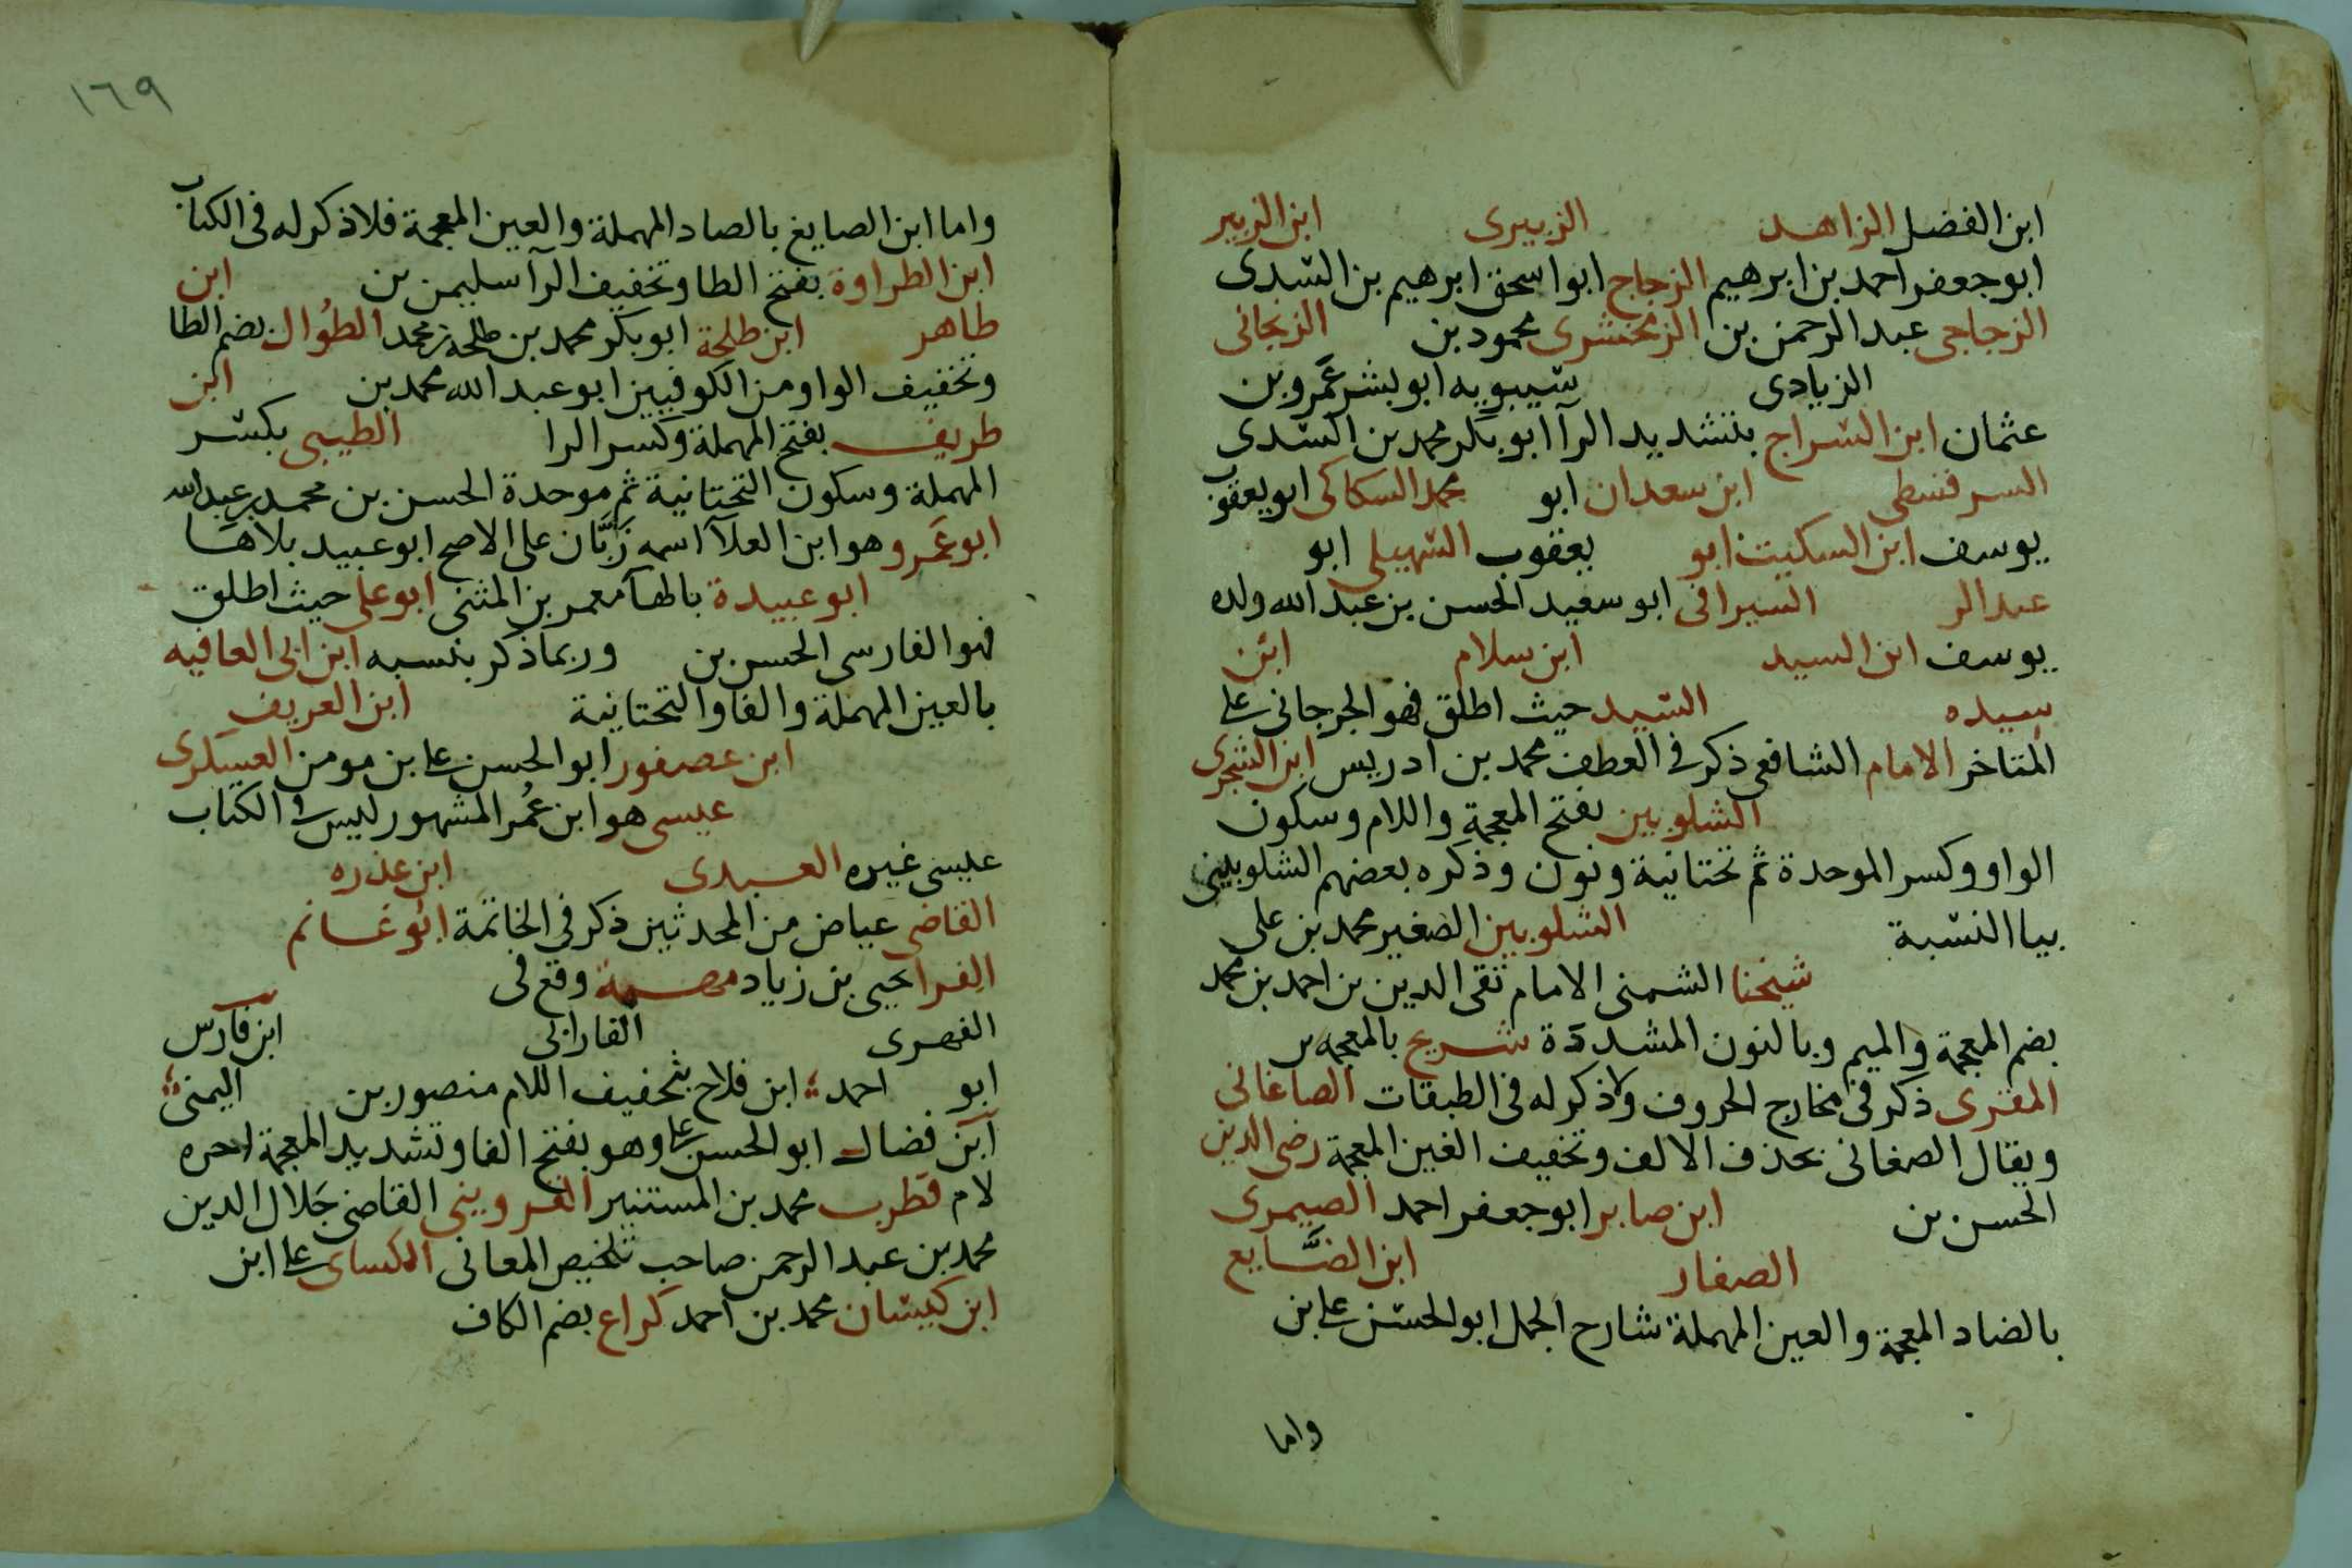 ابن الفضل الزاهد الزبيرى ابن الزبير
ابو جعفر احمد بن ابرهيم الزجاج ابو اسحق ابرهيم بن السدى
الزجاجى عبد الرحمن بن الزمخشرى محمود بن الزنجانى
الزيادى سيبويه ابو بشر عمرو بن
عثمان ابن السراج بتشديد الرآ ابو بكر محمد بن السدى
السرقسطى ابن سعدان ابو محمد السكاكى ابو يعقوب
يوسف ابن السكيت ابو يعقوب السهيلى ابو
عبد الر السيرافى ابو سعيد الحسن بن عبد الله ولده
يوسف ابن السيد ابن سلام ابن
سيده السيد حيث اطلق فهو الجرجانى على
المتاخر الامام الشافعى ذكر فى العطف محمد بن ادريس ابن الشجرى
الشلوبين بفتح المعجمة واللام وسكون
الواو وكسر الموحدة ثم تحتانية ونون وذكره بعضهم الشلوبينى
بيا النسبة الشلوبين الصغير محمد بن على
شيخنا الشمنى الامام تقى الدين بن احمد بن محمد
بضم المعجمة والميم وبالنون المشددة شريح بالمعجمه
المقترى ذكر فى مخارج الحروف ولا ذكر له فى الطبقات الصاغانى
ويقال الصغانى بحذف الالف وتخفيف الغين المعجمة رضى الدين
الحسن بن ابن صابر ابو جعفر احمد الصيمرى
الصفار ابن الضايع
بالضاد المعجمة والعين المهملة شارح الجمل ابو الحسن على بن
واما
١٦٩
واما ابن الصايغ بالصاد المهملة والعين المعجمة فلا ذكر له فى الكتاب
ابن الطراوة بفتح الطا وتخفيف الرآ سليمن بن ابن
طاهر ابن طلحة ابو بكر محمد بن طلحة بن محمد الطُوال بضم الطا
وتخفيف الواو من الكوفيين ابو عبد الله محمد بن ابن
طريف بفتح المهملة وكسر الرا الطيبى بكسر
المهملة وسكون التحتانية ثم موحدة الحسن بن محمد بن عبد الله
ابو عمرو وهو ابن العلآ اسمه زبَّان على الاصح ابو عبيد بلا ها
ابو عبيدة بالهآ معمر بن المثنى ابو على حيث اطلق
فهو الفارسى الحسن بن وربما ذكر بنسبه ابن ابى العافيه
بالعين المهملة والفا والتحتانية ابن العريف
ابن عصفور ابو الحسن على بن مومن العسكرى
عيسى هو ابن عُمر المشهور ليس فى الكتاب
عيسى غيره العبدى ابن عذره
القاضى عياض من المحدثين ذكر فى الخاتمة ابو غانم
الفرا يحيى بن زياد وقع فى
الفهرى الفارابى ابن فارس
ابو احمد ابن فلاح بتخفيف اللام منصور بن اليمنى
ابن فضال ابو الحسن على وهو بفتح الفا وتشديد المعجمة اخره
لام قطرب محمد بن المستنير القزوينى القاضى جَلال الدين
محمد بن عبد الرحمن صاحب تلخيص المعانى الكساى على ابن
ابن كيسان محمد بن احمد كراع بضم الكاف